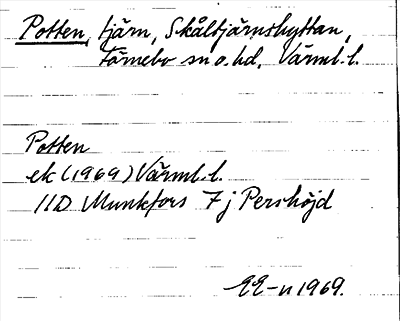 Potten, tjärn, Skåltjärnshyttan,
Färnebo sn o. hd, Värml. l.
Potten
ek (1969) Värml. l.
11D Munkfors 7j Pershöjd
EE-n 1969.